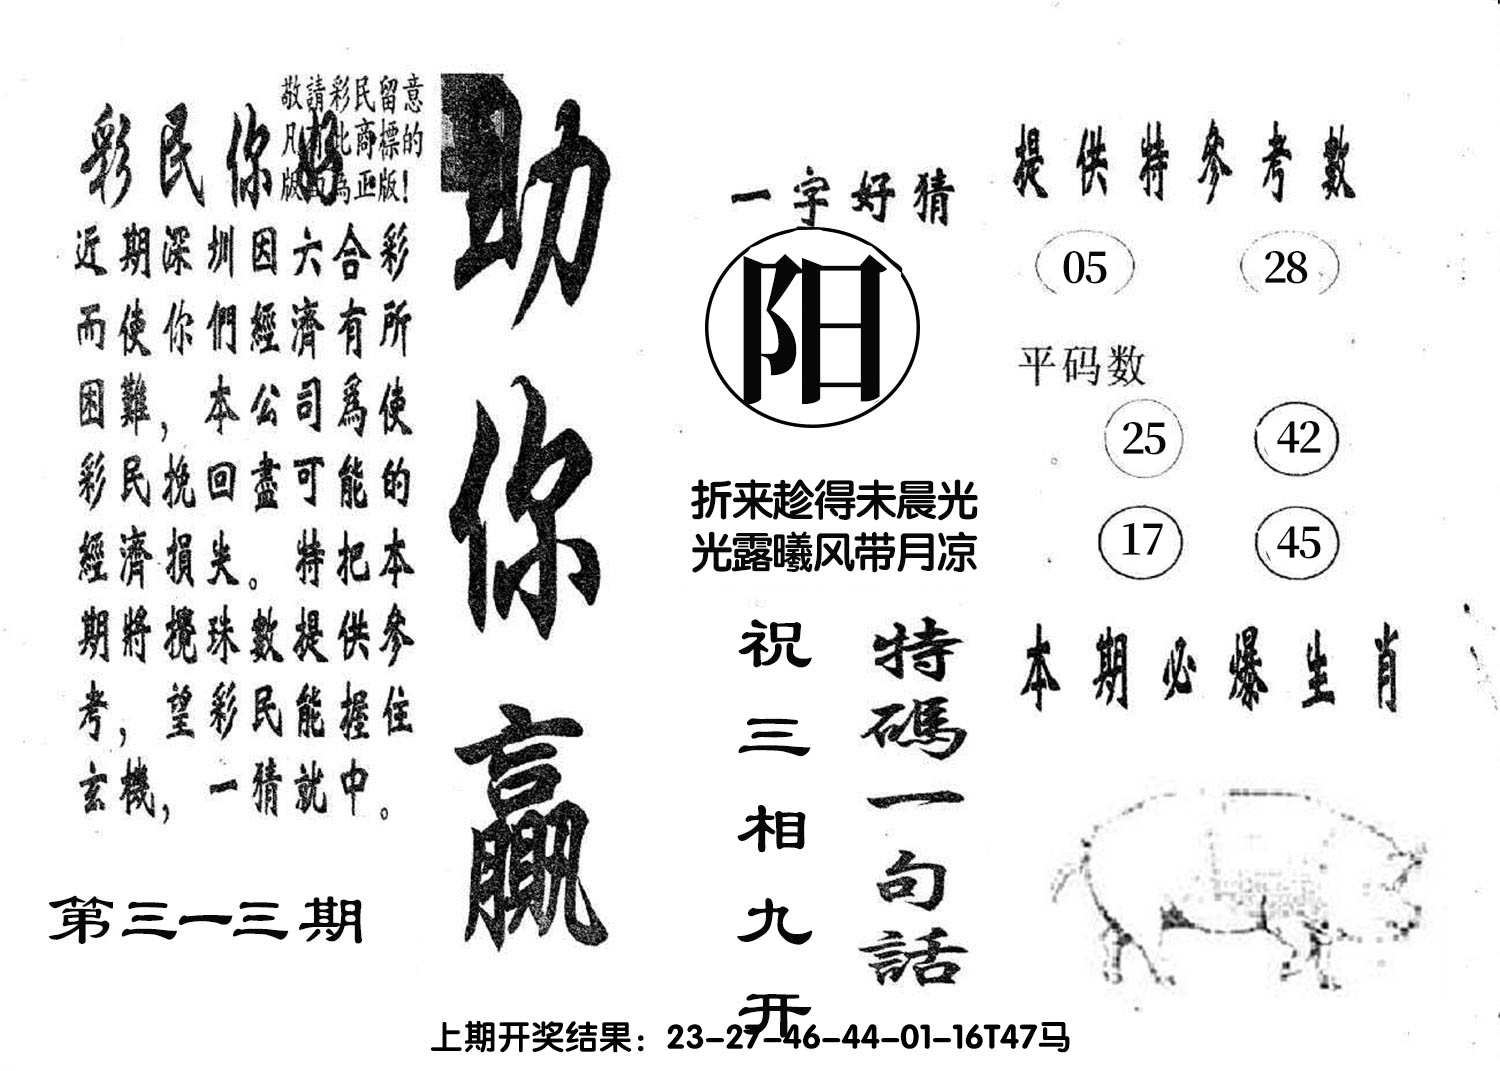 敬請彩民留意
凡有此商標的
版面為正版！
彩民你好
近期深圳因六合彩
而使你們經濟有所
困難，本公司爲使
彩民挽回盡可能的
經濟損失。特把本
期將攪珠數提供參
考，望彩民能握住
玄機，一猜就中。
第三一三期
助你贏
一字好猜
阳
折来趁得未晨光
光露曦风带月凉
特碼一句話
祝三相九开
提供特参考數
05 28
平码数
25 42
17 45
本期必爆生肖
上期开奖结果：23-27-46-44-01-16T47马